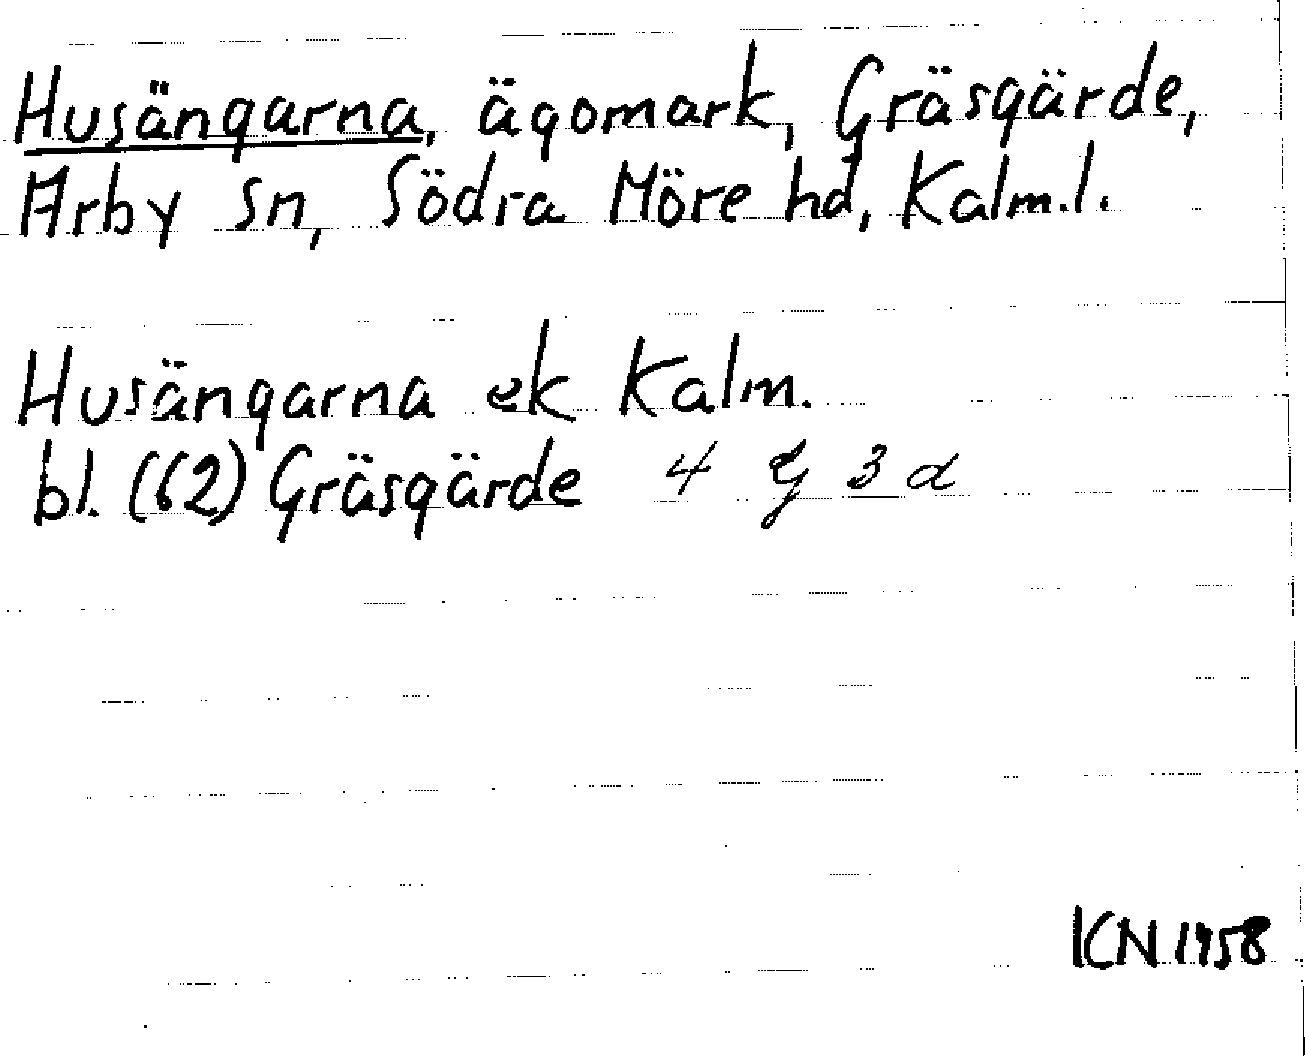 Husängarna, ägomark, Gräsgärde,
Arby sn, Södra Möre hd, Kalm.l.
Husängarna ek Kalm.
bl. (62) Gräsgärde 4 G 3 d
KN 1958